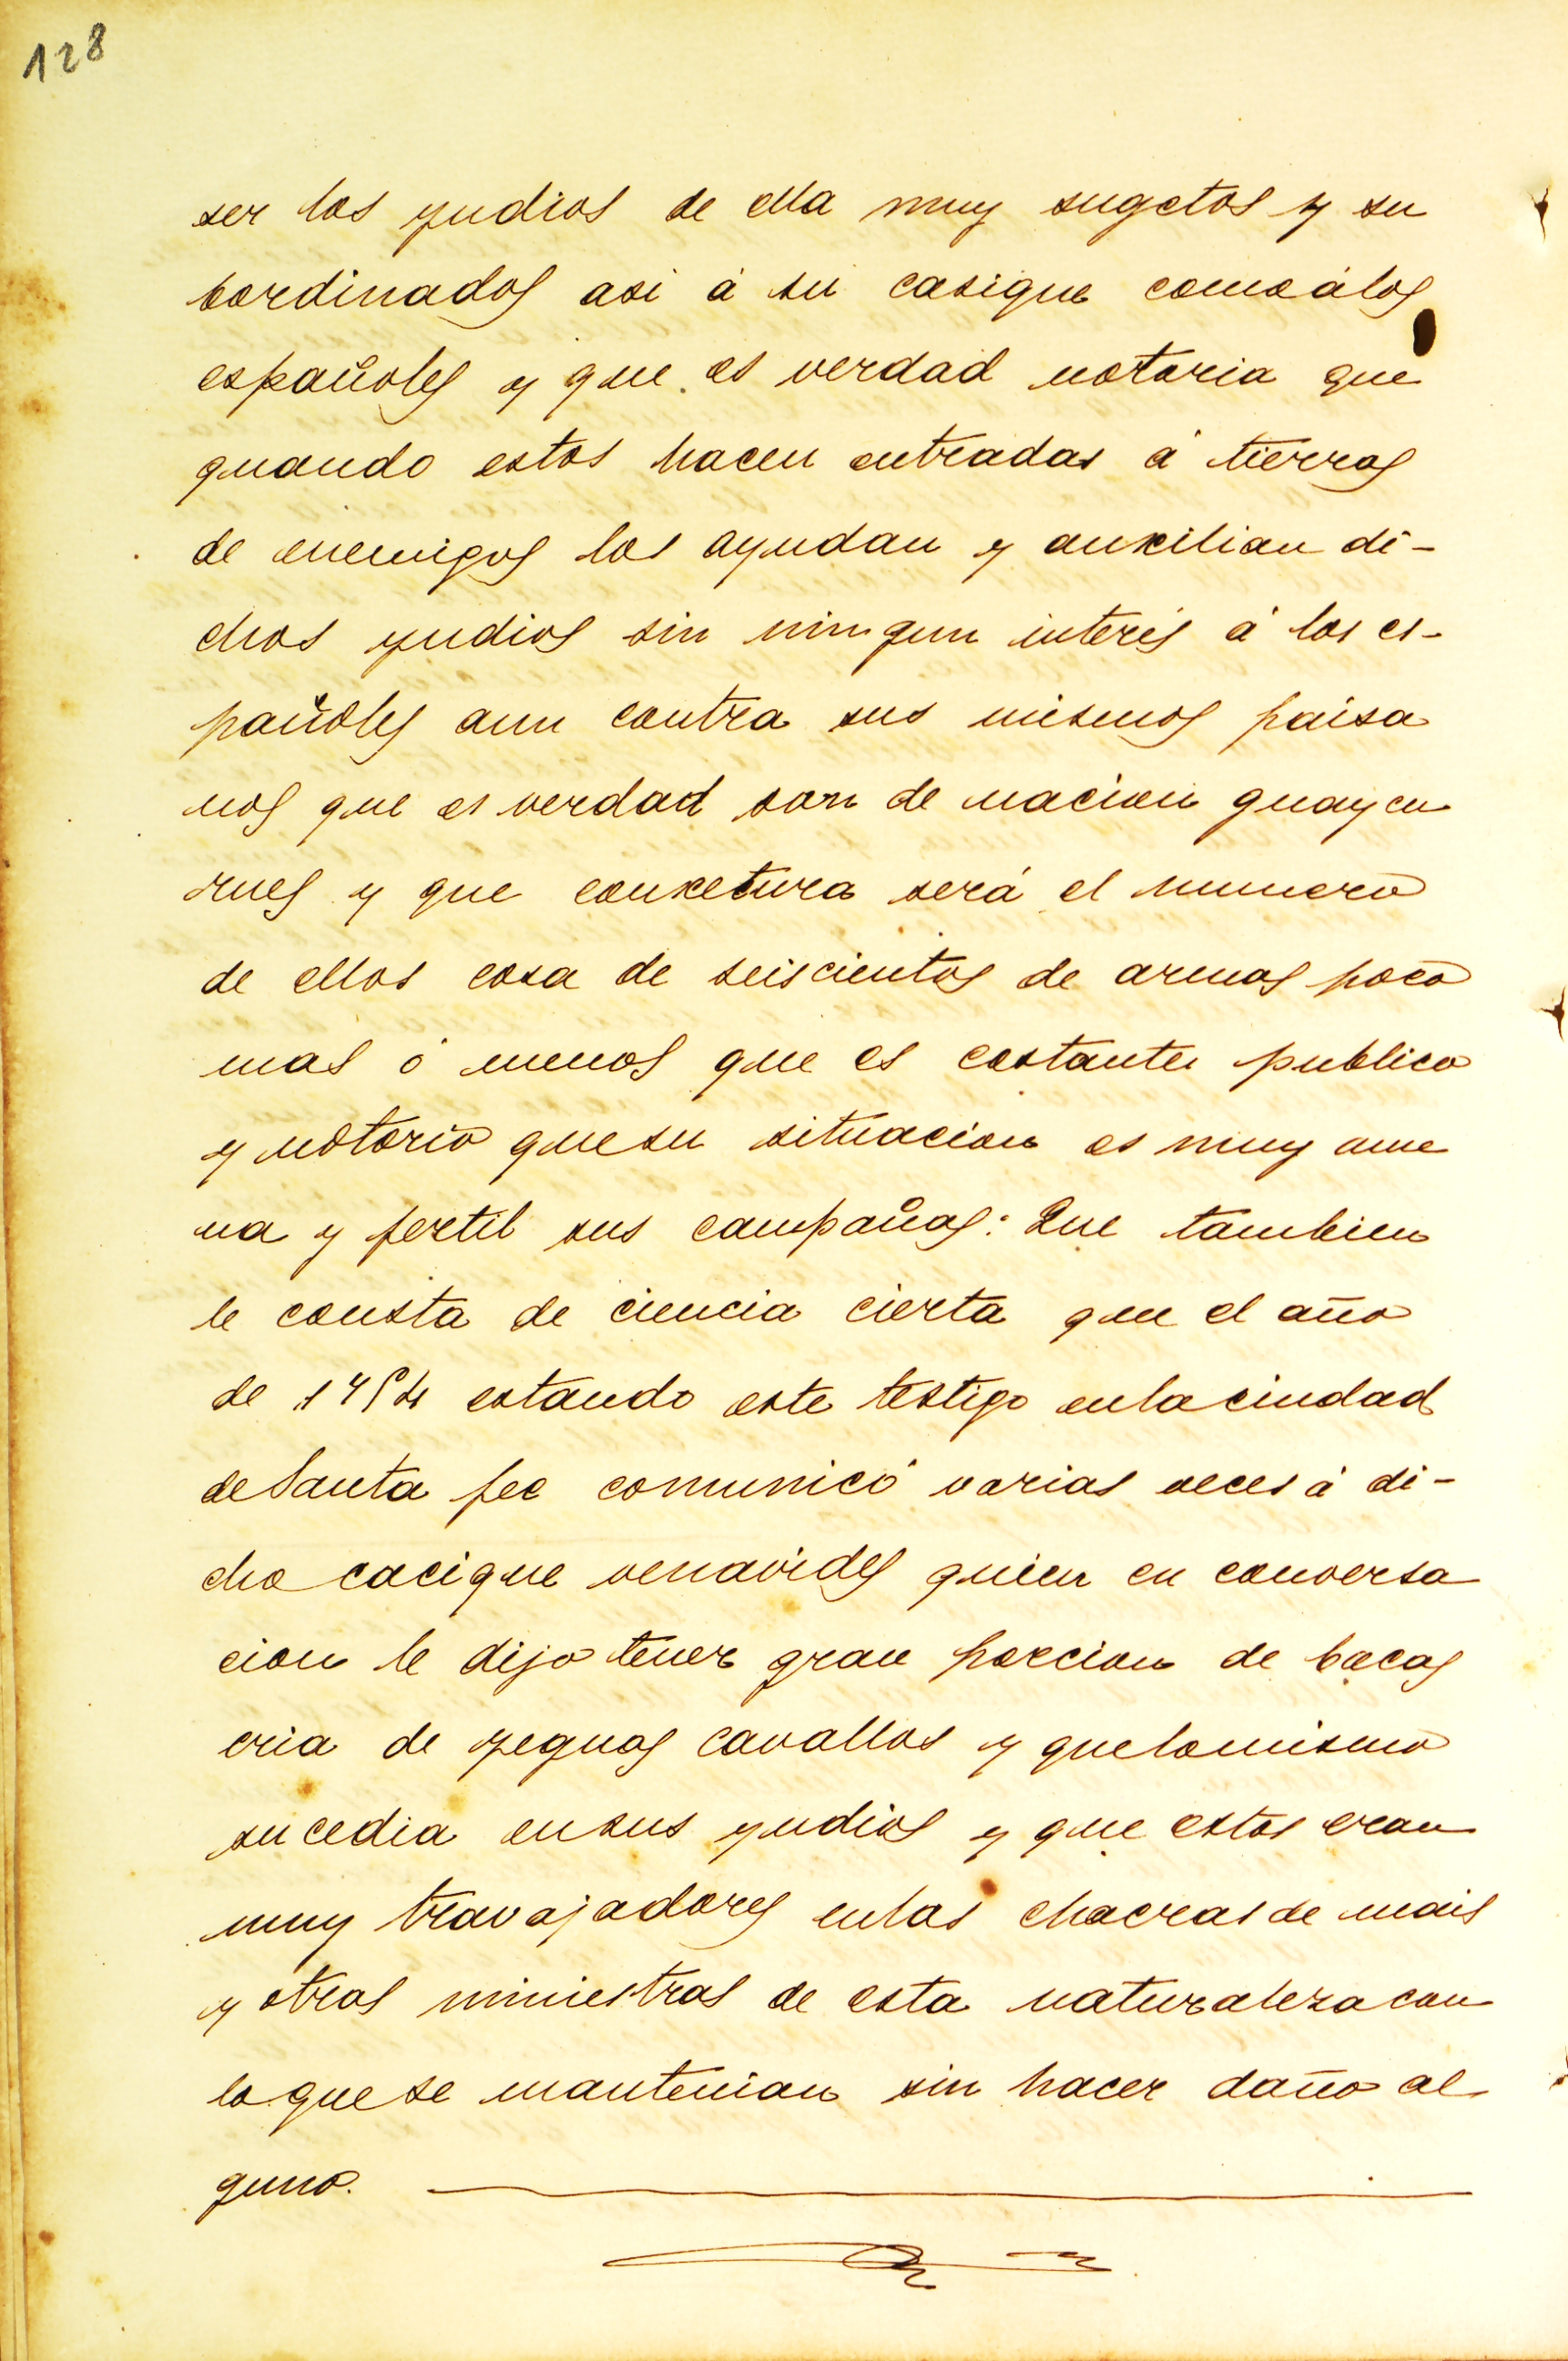 128
ser los yndios de ella muy sugetos y su
bordinados asi á su casique comoálos
españoles y que es verdad notoria que
quando estos hacen entradas á tierras
de enemigos los ayudan y auxilian di-
chos yndios sin ningun interés á los es-
pañoles aun contra sus mismos paisa
nos que es verdad son de nacion guaycu
rues y que conxetura será el numero
de ellos cosa de seiscientos de armas poco
mas ó menos que es costante publico
y notorio quesu situacion es muy ame
na y fertil sus campañas: Que tambien
le consta de ciencia cierta que el año
de estando este testigo enlaciudad
deSanta fee comunicó varias veces á di-
cho cacique venavides quien en conversa
cion le dijo tener gran porcion de bacas
cria de yeguas cavallos y quelomismo
sucedia ensus yndios y que estos eran
muy travajadores enlas chacras de mais
y otras miniestras de esta naturaleza con
loquese mantenian sin hacer daño al
guno.